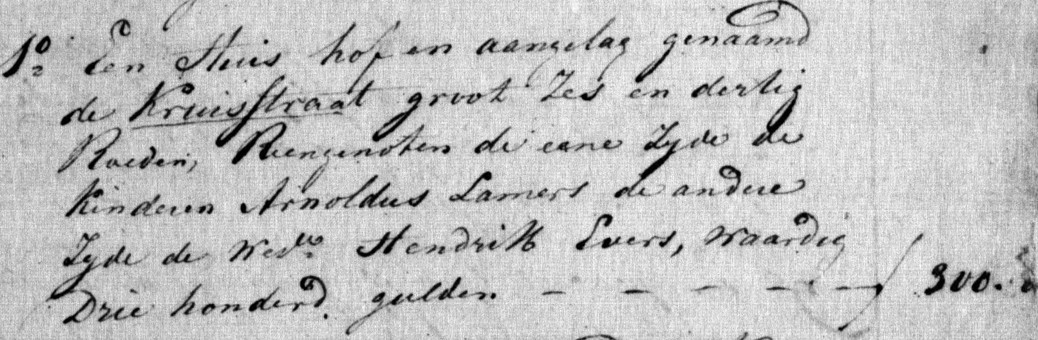 1º Een Huis hof en aangelag genaamd
de Kruisstraat groot Zes en dertig
Roeden, Reengenoten de eene Zyde de
Kinderen Arnoldus Lamers de andere
Zyde de Wedwe Hendrik Evers, waardig
Drie honderd gulden — — — — — ƒ 300.